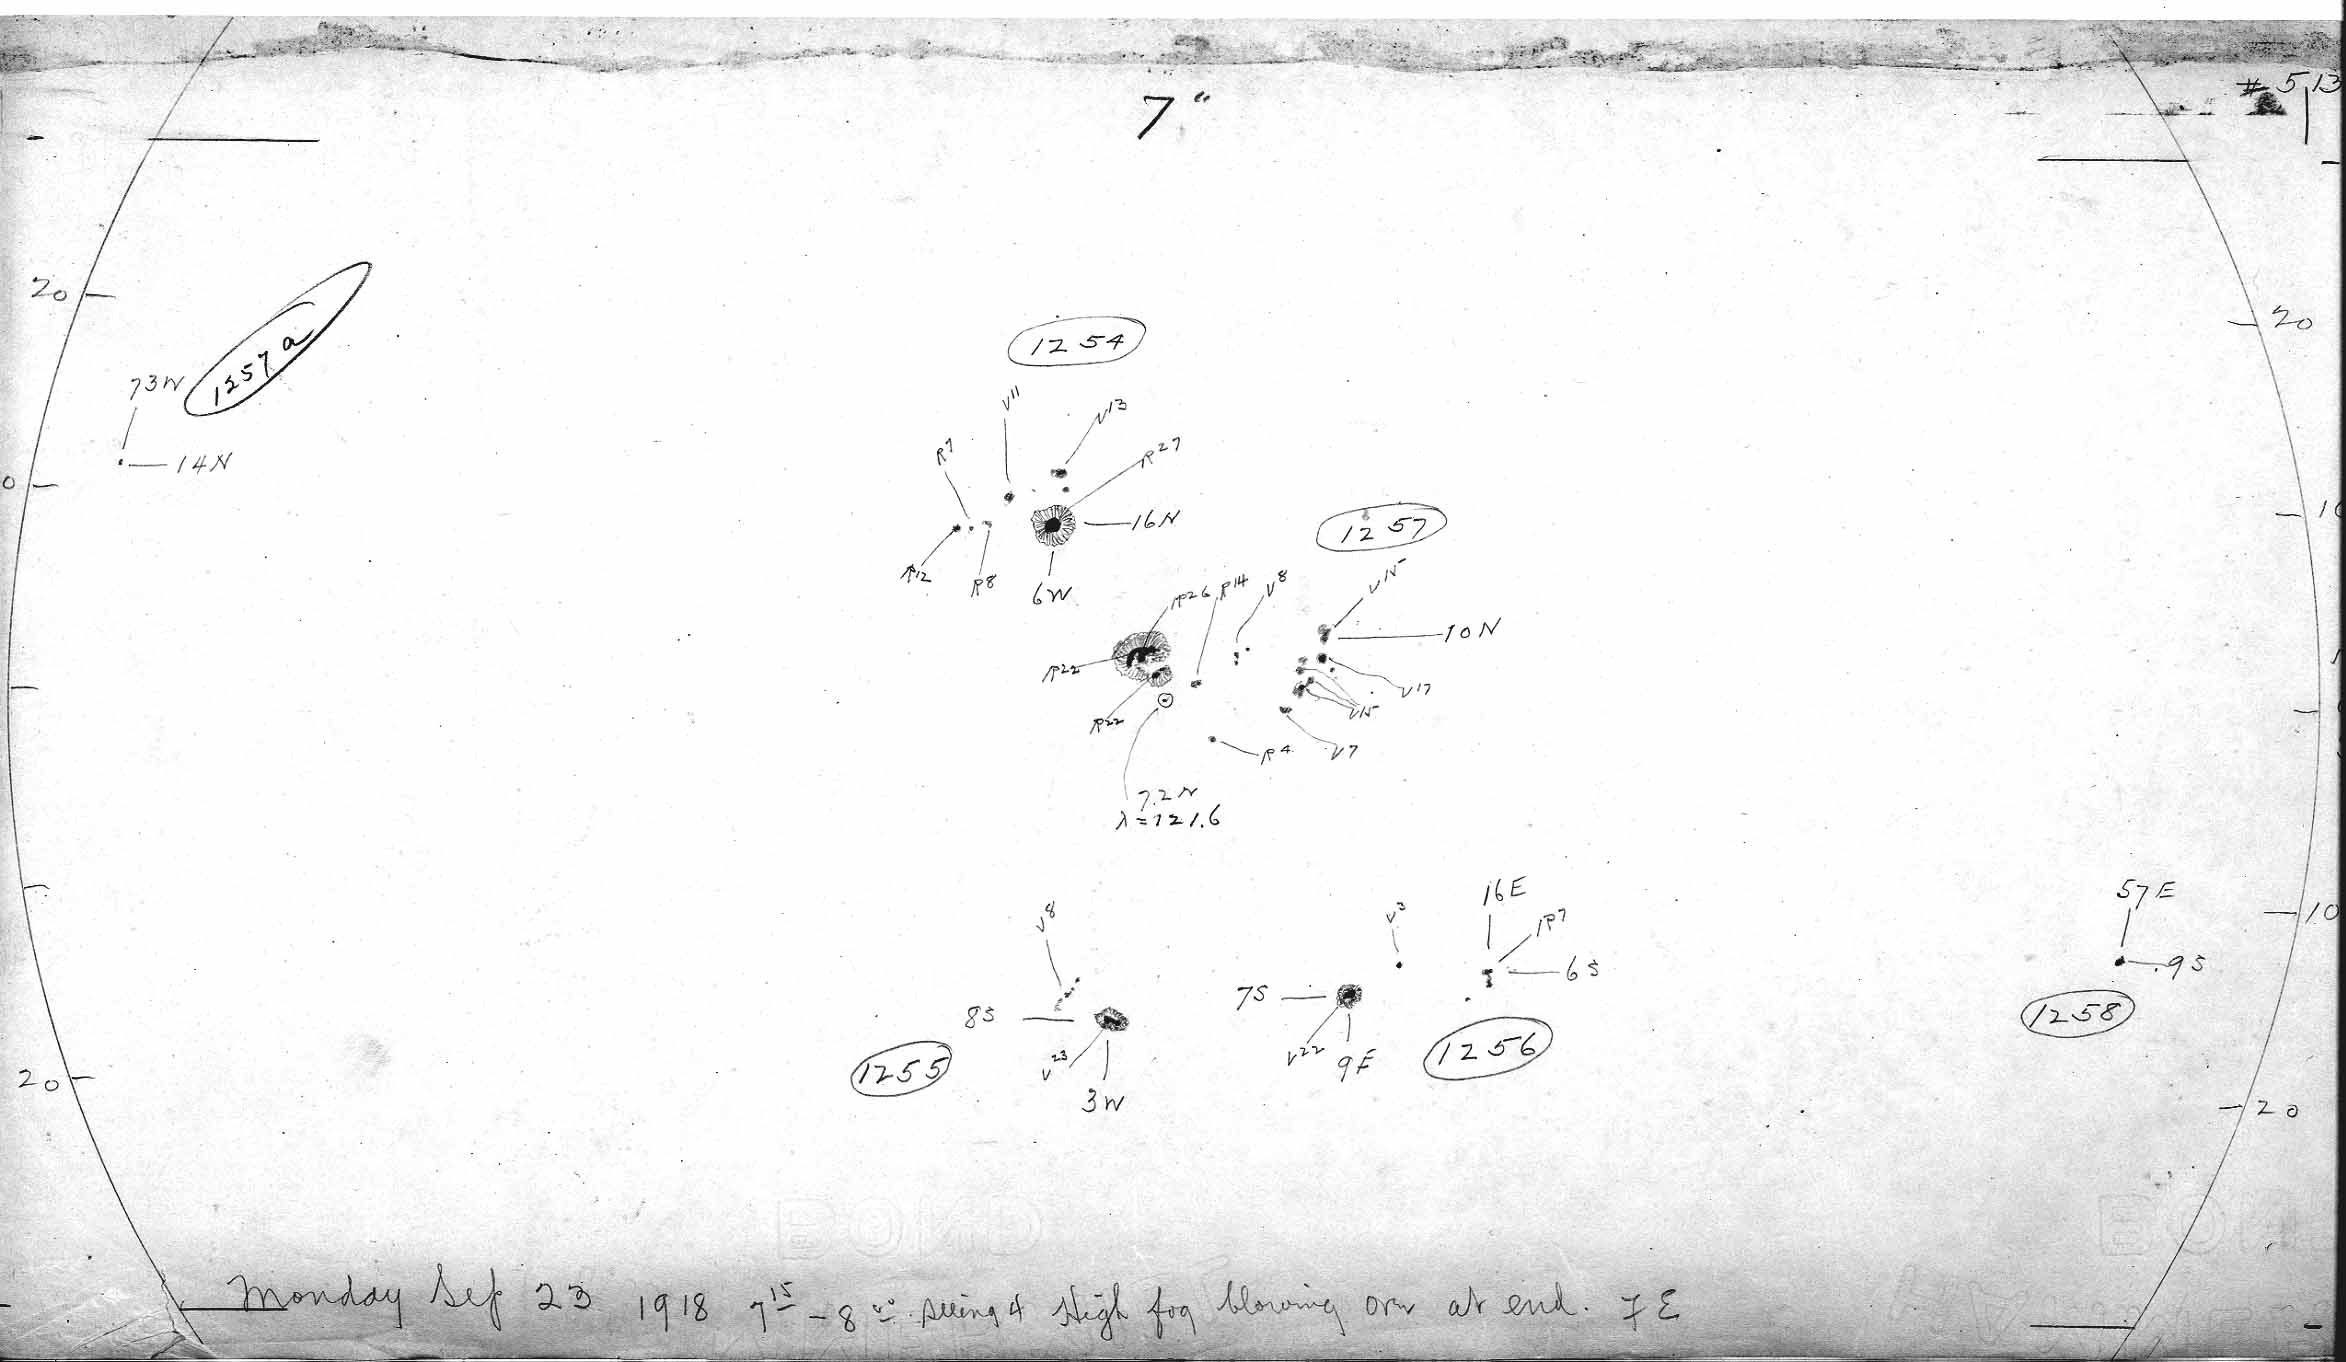 # 5,13
7"
20
1257a
20
1254
73W
V11
V13
14N
R7
R27
0
16N
10
1257
R12
R8
6W
R26
R14
V8
V15
10N
R22
V17
V15
R22
R4
V7
7.2N
λ=121.6
16E
57E
V8
V3
R7
10
6S
9S
7S
8S
1258
1255
V23
V22
9E
1256
20
3W
20
BOND
BON
Monday Sep 23 1918 7 15 - 8 00. Seeing 4 High fog blowing over at end. FE